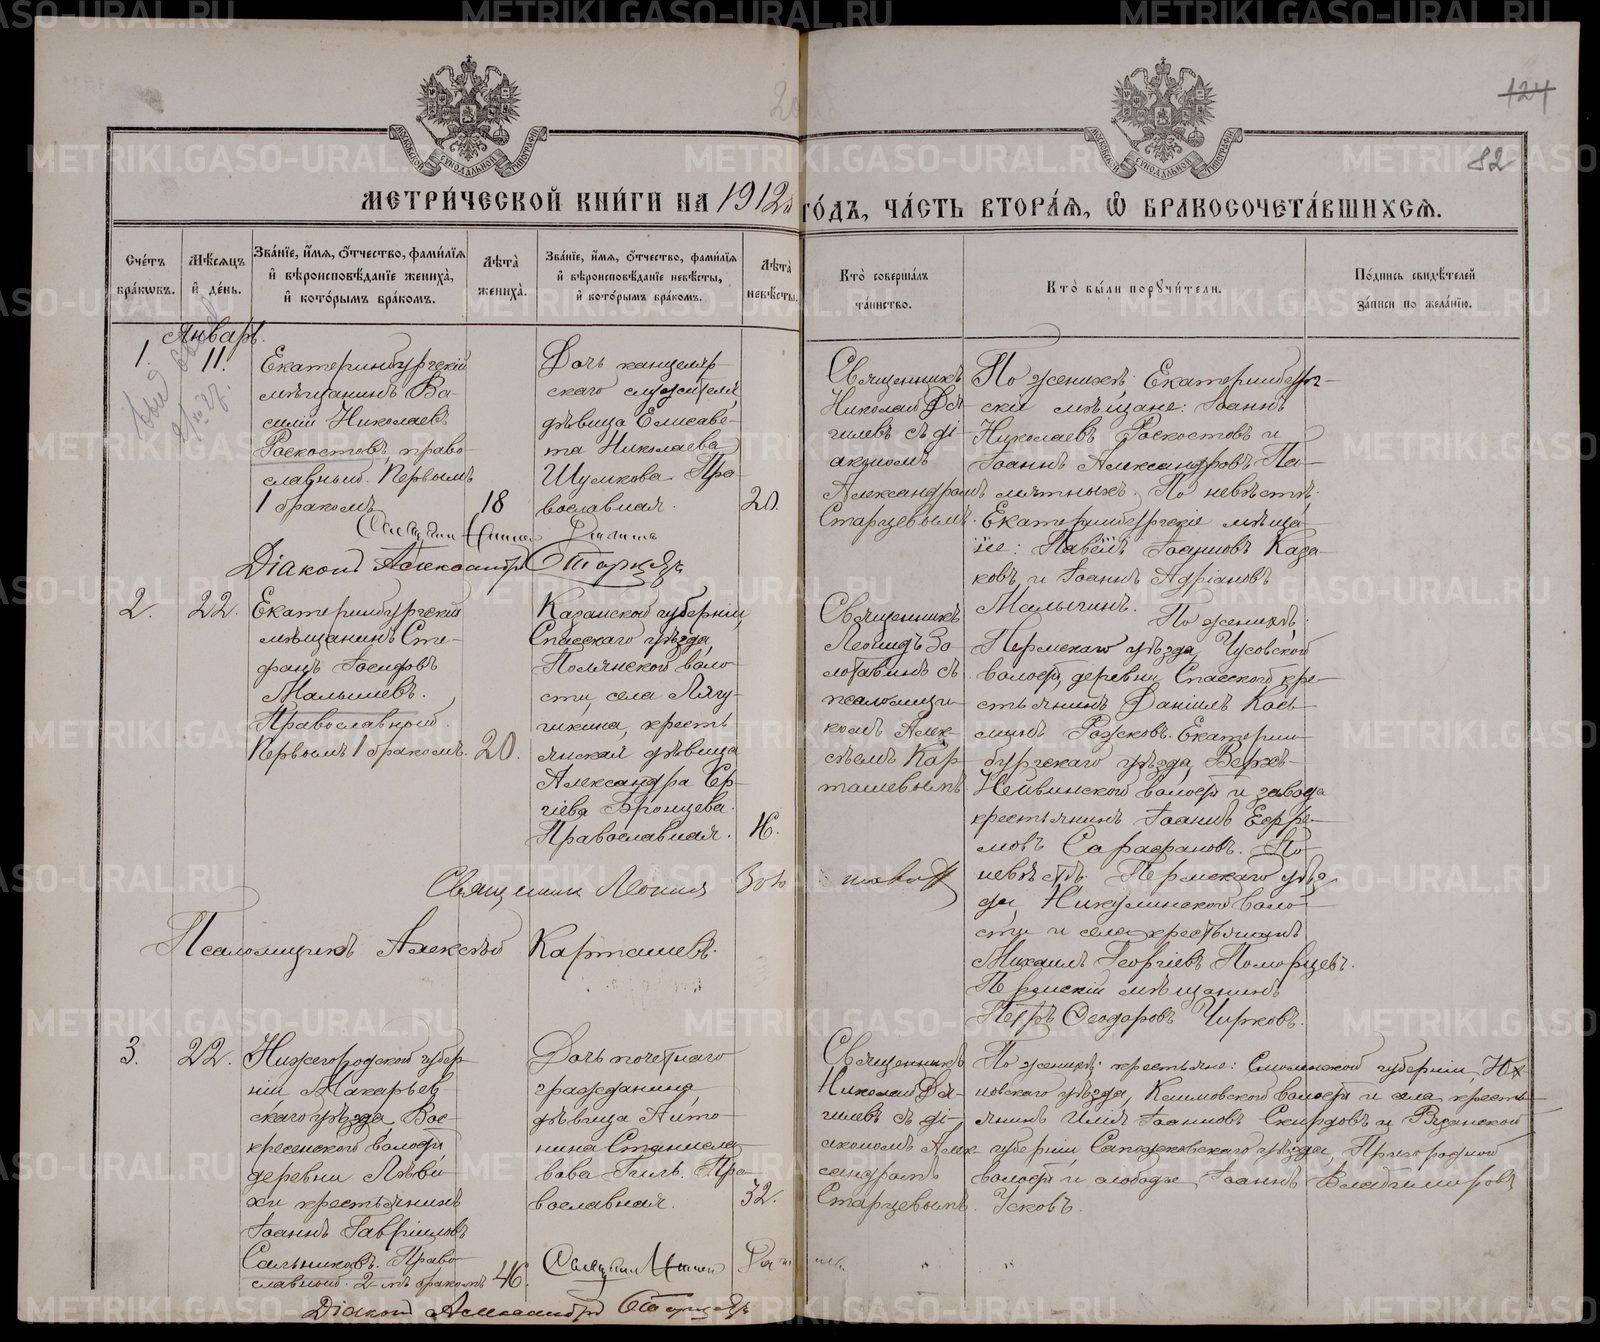 124
82
МЕТРИ́ЧЕСКОЙ КНИ́ГИ НА 1912й ГО́ДЪ, ЧА́СТЬ ВТОРА́Я, Ѡ БРАКОСОЧЕТА́ВШИХСЯ.
Сче́тъ бра́кѡвъ.
Мѣ́сяцъ и҆ де́нь.
Зва́нїе, и҆́мя, ѻ҆́тчество, фами́лїя и҆ вѣроисповѣ́данїе жениха̀, и҆ кото́рымъ бра́комъ.
Лѣ́та жениха̀.
Зва́нїе, и҆́мя, ѻ҆́тчество, фами́лїя и҆ вѣроисповѣ́данїе невѣ́сты, и҆ кото́рымъ бра́комъ.
Лѣ́та невѣ́сты.
Кто̀ соверша́лъ та́инство.
Кто̀ бы́ли порꙋчи́тели.
По́дпись свидѣ́телей за́писи по жела́нїю.
Январь.
1.
11.
Екатеринбургскій
мѣщанинъ Ва-
силій Николаевъ
Роскостовъ, право-
славный. Первымъ
1 бракомъ
18
Дочь канцеляр-
скаго служителя,
дѣвица Елисаве-
та Николаева
Шумкова. Пра-
вославная.
20.
Священникъ
Николай Дя-
гилевъ съ ді-
акономъ
Александромъ
Старцевымъ.
По женихѣ: Екатеринбург-
скіе мѣщане: Іоаннъ
Николаевъ Роскостовъ и
Іоаннъ Александровъ Па-
мятныхъ. По невѣстѣ:
Екатеринбургскіе мѣща-
не: Павелъ Іоанновъ Каза-
ковъ, и Іоаннъ Адріановъ
Малыгинъ.
Діаконъ Александръ Старцевъ
2.
22.
Екатеринбургскій
мѣщанинъ Сте-
фанъ Іосифовъ
Малышевъ.
Православный.
Первымъ 1 бракомъ.
20.
Казанской губерніи,
Спасскаго уѣзда,
Полянской воло-
сти, села Лягу-
шкина, кресть-
янская дѣвица
Александра Сер-
гіева Бронцева.
Православная.
16.
Священникъ
Леонидъ Зо-
лотавинъ съ
псаломщи-
комъ Алек-
сѣемъ Кар-
ташевымъ.
По женихѣ:
Пермскаго уѣзда, Чусовской
волости, деревни Спасской кре-
стьянинъ Даніилъ Кось-
минъ Рожковъ. Екатерин-
бургскаго уѣзда, Верхъ-
Нейвинской волости и завода
крестьянинъ Іоаннъ Ефре-
мовъ Сарафановъ. По
невѣстѣ: Пермскаго уѣз-
да, Никулинской воло-
сти и села крестьянинъ
Михаилъ Георгіевъ Поморцевъ.
Пермскій мѣщанинъ
Петръ Ѳеодоровъ Чирковъ.
Священникъ Леонидъ Золотавинъ
Псаломщикъ Алексѣй Карташевъ.
3.
22.
Нижегородской губер-
ніи Макарьев-
скаго уѣзда, Вос-
кресенской волости
деревни
крестьянинъ
Іоаннъ Гавріиловъ
Сальниковъ. Право-
славный. 2-мъ бракомъ
46.
Дочь почетнаго
гражданина
дѣвица Анто-
нина Станисла-
вова Гиль. Пра-
вославная.
32.
Священникъ
Николай Дя-
гилевъ съ ді-
акономъ Алек-
сандромъ
Старцевымъ.
По женихѣ: крестьяне: Смоленской губерніи, Юх-
новскаго уѣзда, Климовской волости и села кресть-
янинъ Илія Іоанновъ Скирдовъ и Рязанской
губерніи, Сапожковскаго уѣзда, Пригородной
волости и слободы, Іоаннъ Владиміровъ
Усковъ.
Діаконъ Александръ Старцевъ
METRIKI.GASO-URAL.RU